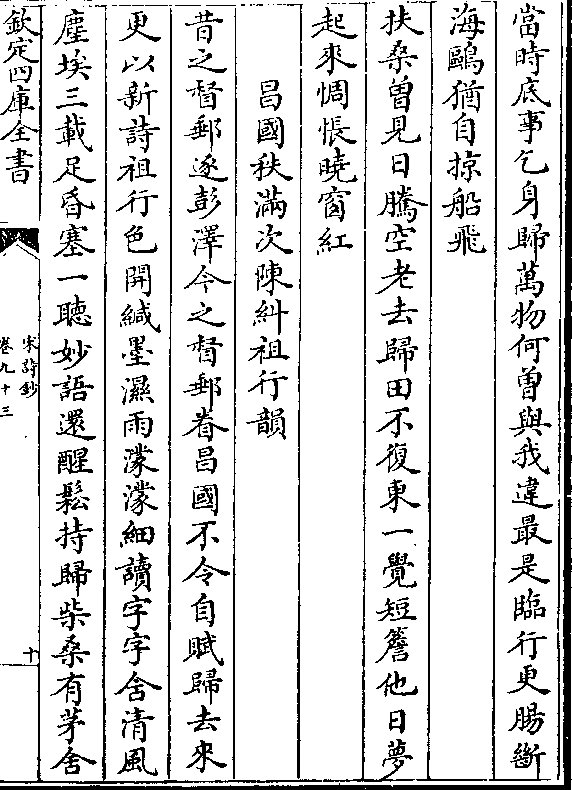 當時底事乞身歸萬物何曽與我違最是臨行更腸斷
海鷗猶自掠船飛
扶桑曽見日騰空老去歸田不復東一覺短簷他日夢
起來惆悵曉窗紅
昌國秩滿次陳糾祖行韻
昔之督郵逐彭澤今之督郵眷昌國不令自賦歸去來
更以新詩祖行色開緘墨濕雨濛濛細讀字字含清風
塵埃三載足昏塞一聽妙語還醒鬆持歸柴桑有茅舍
欽定四庫全書
宋詩鈔
卷九十三
十